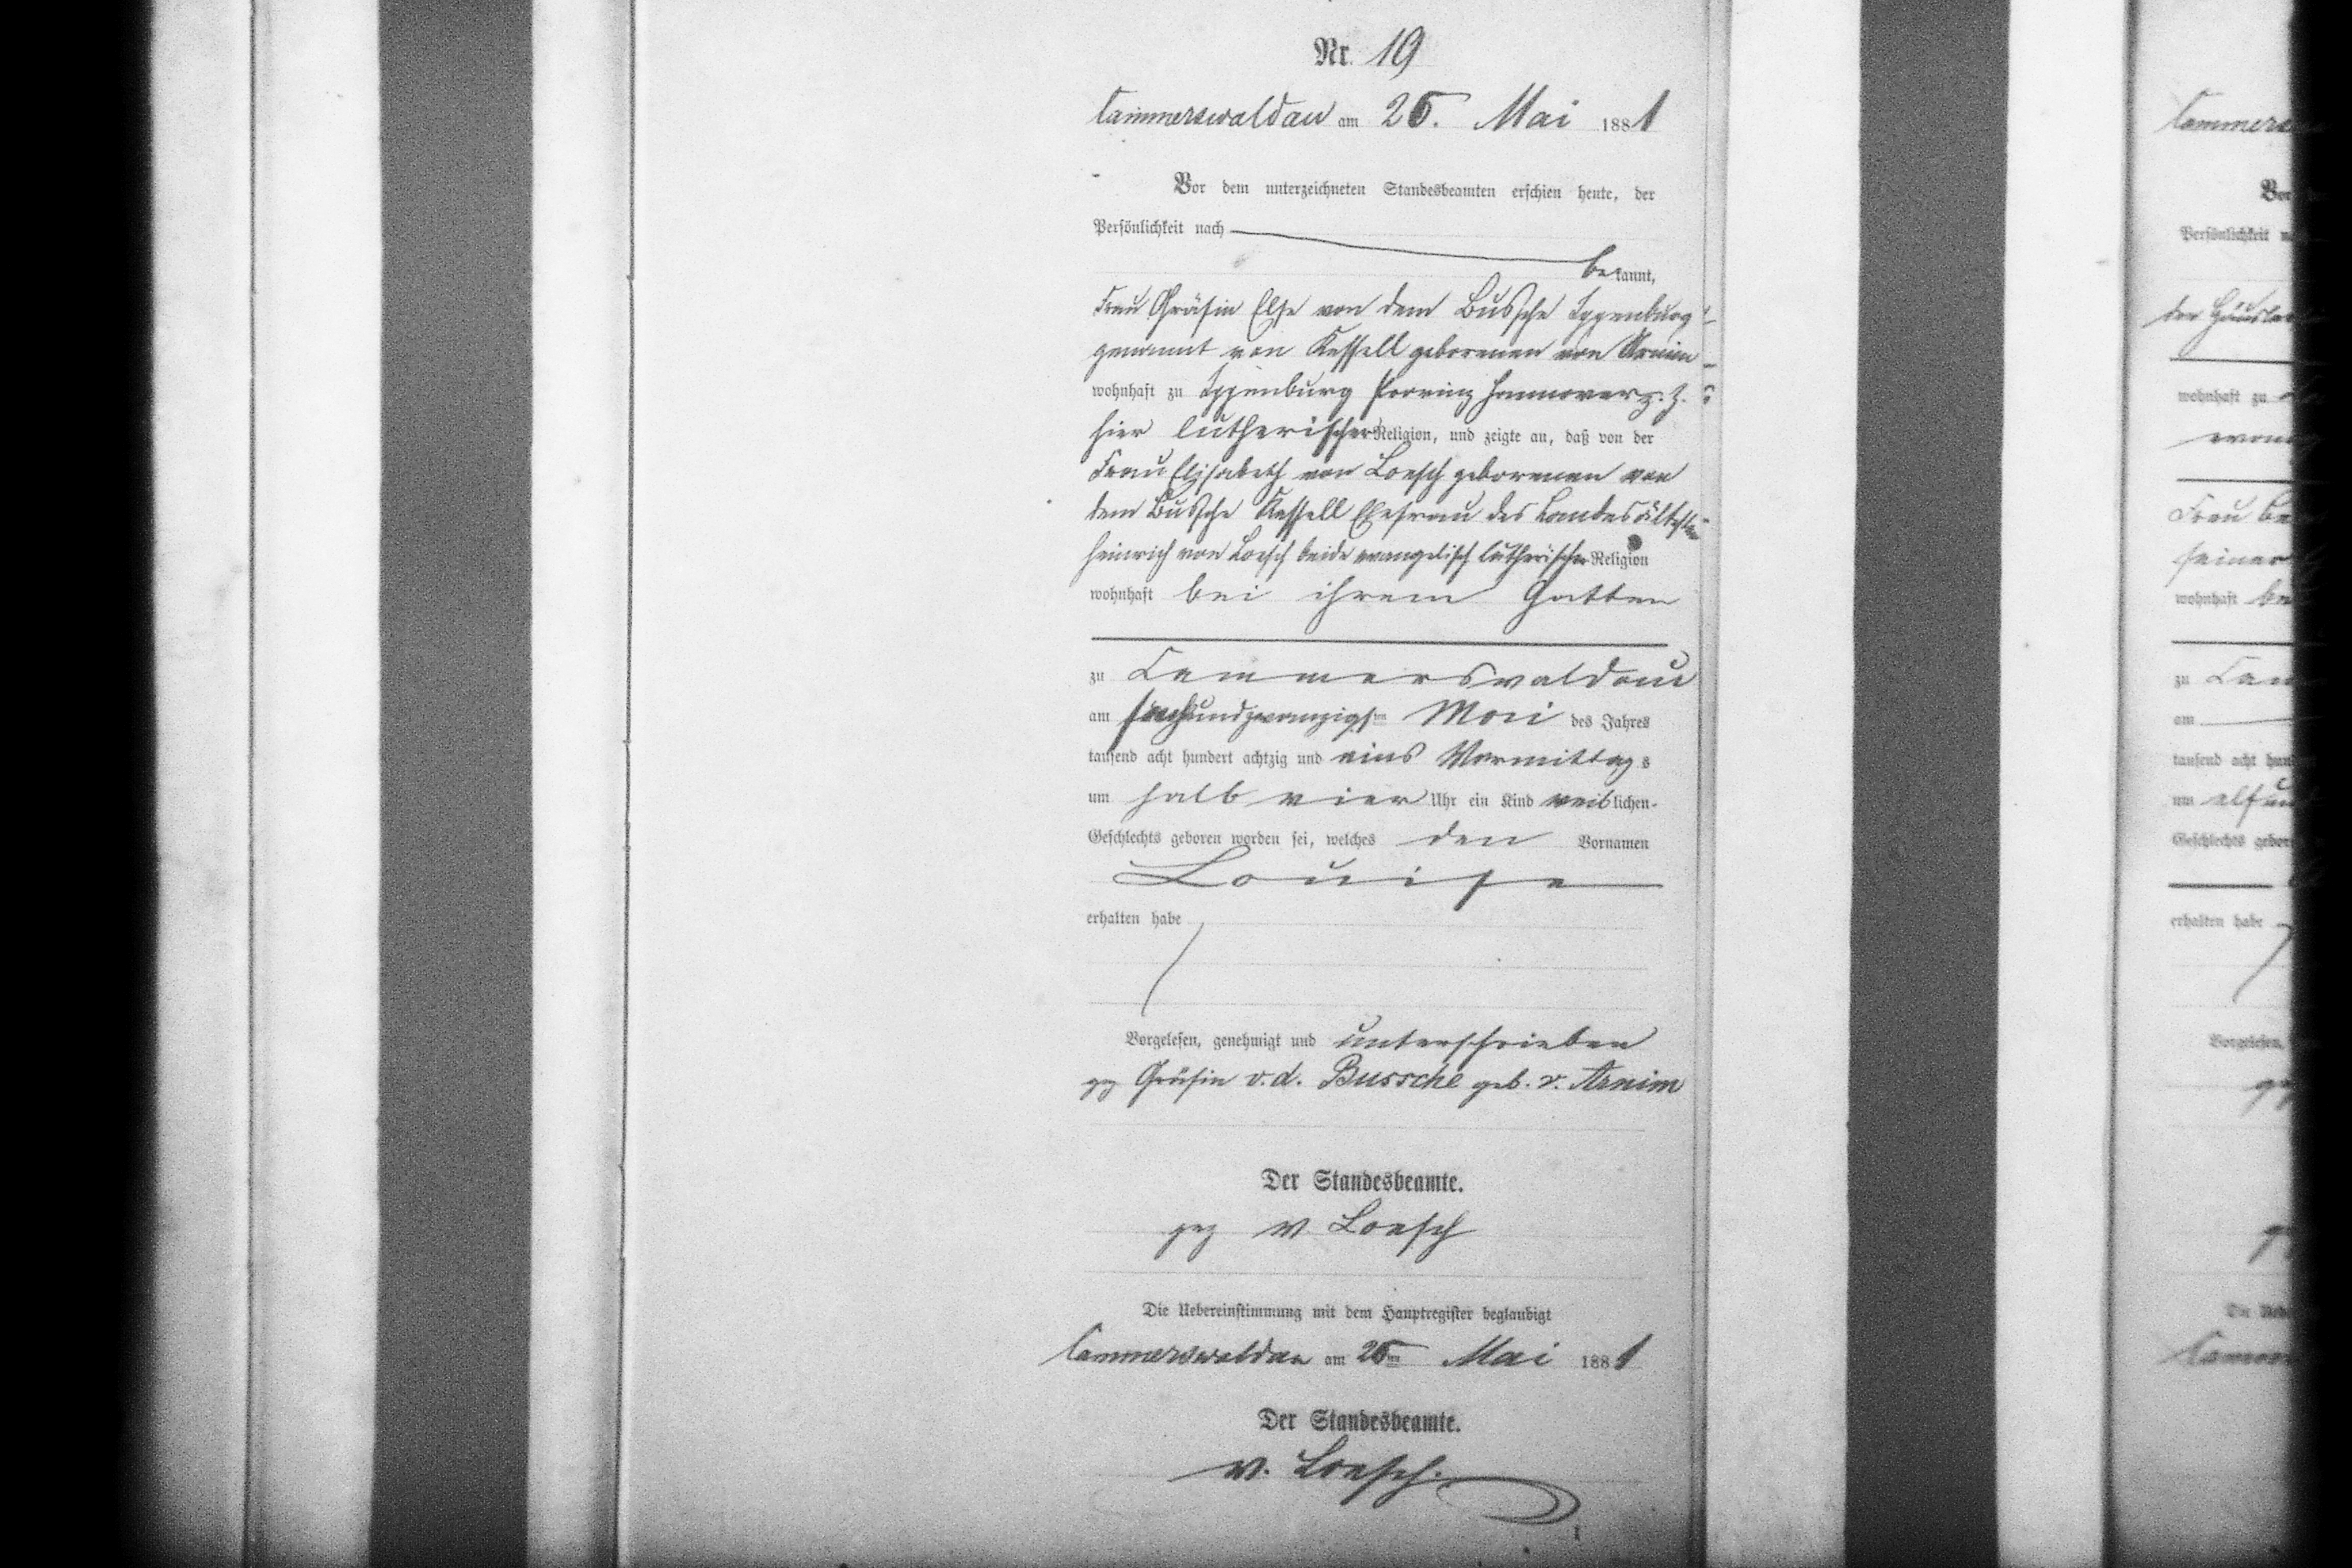 Nr. 19
Cammerswaldau am 26. Mai 1881
Vor dem unterzeichneten Standesbeamten erschien heute, der
Persönlichkeit nach
bekannt,
Frau Gräfin Else von dem Bussche Ippenburg
genannt von Kessell geborenen von Arnim
wohnhaft zu Ippenburg Provinz Hannover z. Z.
hier lutherischer Religion, und zeigte an, daß von der
Frau Elisabeth von Loesch geborenen von
dem Bussche Kessell Ehefrau des Landesältesten
Heinrich von Loesch beide evangelisch lutherischer Religion
wohnhaft bei ihrem Gatten
zu Cammerswaldau
am sechsundzwanzigsten Mai des Jahres
tausend acht hundert achtzig und eins Vormittags
um halb vier Uhr ein Kind weiblichen
Geschlechts geboren worden sei, welches den Vornamen
Louise
erhalten habe
Vorgelesen, genehmigt und unterschrieben
gez Gräfin v. d. Bussche geb. v. Arnim
Der Standesbeamte.
gez v. Loesch
Die Uebereinstimmung mit dem Hauptregister beglaubigt
Cammerswaldau am 26ten Mai 1881
Der Standesbeamte.
v. Loesch.
Vor
Persönlichkeit
wohnhaft zu
Frau
seiner
wohnhaft
zu
am
tausend acht
um elf
Geschlechts
erhalten habe
Vorgelesen,